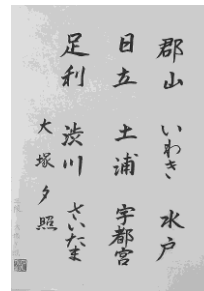 郡山 いわき 水戸
日立 土浦 宇都宮
足利 渋川 さいたま
大塚夕照